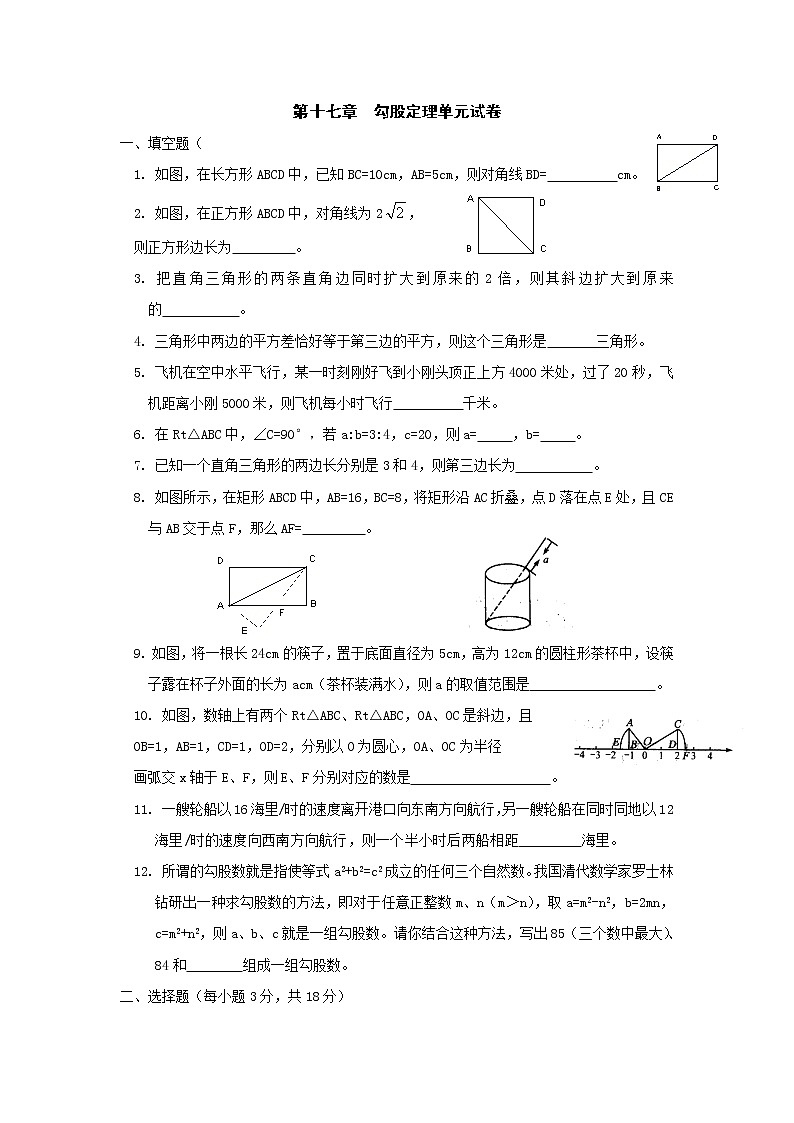 第十七章 勾股定理单元试卷
一、填空题(
1. 如图,在长方形ABCD中,已知BC=10cm,AB=5cm,则对角线BD=__________cm。
A D
B C
2. 如图,在正方形ABCD中,对角线为2√2,
A D
则正方形边长为_________。
B C
3. 把直角三角形的两条直角边同时扩大到原来的2倍,则其斜边扩大到原来
的___________。
4. 三角形中两边的平方差恰好等于第三边的平方,则这个三角形是_______三角形。
5. 飞机在空中水平飞行,某一时刻刚好飞到小刚头顶正上方4000米处,过了20秒,飞
机距离小刚5000米,则飞机每小时飞行__________千米。
6. 在Rt△ABC中,∠C=90°,若a:b=3:4,c=20,则a=_____,b=_____。
7. 已知一个直角三角形的两边长分别是3和4,则第三边长为___________。
8. 如图所示,在矩形ABCD中,AB=16,BC=8,将矩形沿AC折叠,点D落在点E处,且CE
与AB交于点F,那么AF=_________。
D C
A F B
E
a
9. 如图,将一根长24cm的筷子,置于底面直径为5cm,高为12cm的圆柱形茶杯中,设筷
子露在杯子外面的长为acm(茶杯装满水),则a的取值范围是__________________。
10. 如图,数轴上有两个Rt△ABC、Rt△ABC,OA、OC是斜边,且
OB=1,AB=1,CD=1,OD=2,分别以O为圆心,OA、OC为半径
画弧交x轴于E、F,则E、F分别对应的数是____________________。
A C
E B O D F
-4 -3 -2 -1 0 1 2 3 4
11. 一艘轮船以16海里/时的速度离开港口向东南方向航行,另一艘轮船在同时同地以12
海里/时的速度向西南方向航行,则一个半小时后两船相距_________海里。
12. 所谓的勾股数就是指使等式a²+b²=c²成立的任何三个自然数。我国清代数学家罗士林
钻研出一种求勾股数的方法,即对于任意正整数m、n(m>n),取a=m²-n²,b=2mn,
c=m²+n²,则a、b、c就是一组勾股数。请你结合这种方法,写出85(三个数中最大)、
84和________组成一组勾股数。
二、选择题(每小题3分,共18分)